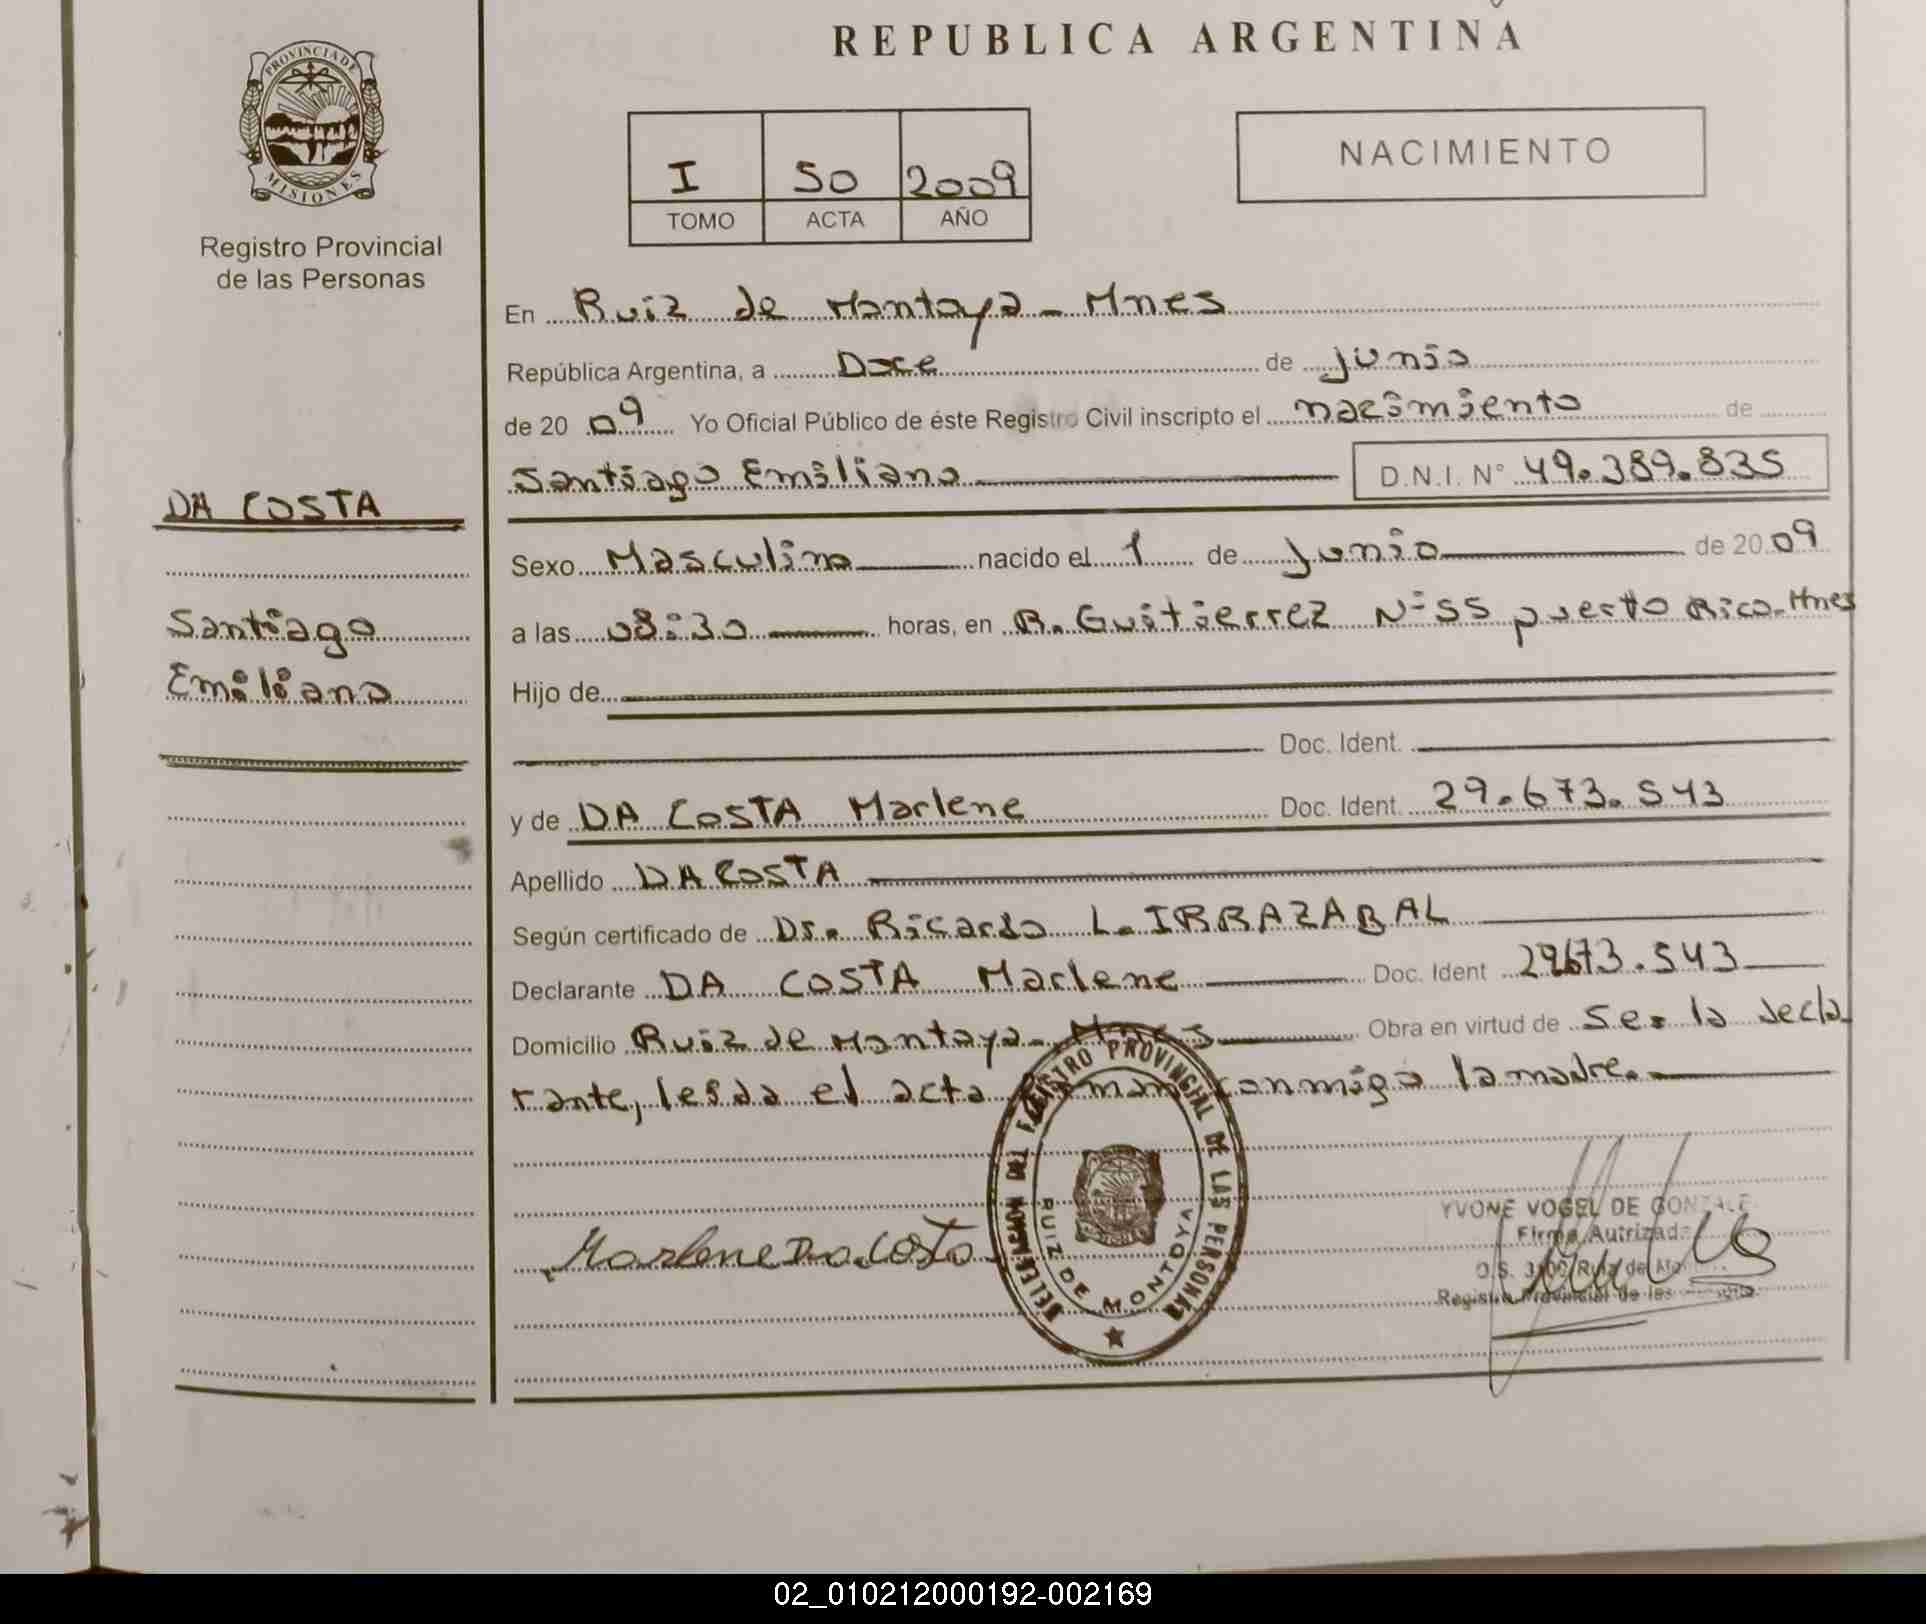 REPUBLICA ARGENTINA
PROVINCIA DE
MISIONES
Registro Provincial
de las Personas
I 50 2009
TOMO ACTA AÑO
NACIMIENTO
En Ruiz de Montoya - Mnes
República Argentina, a Doce de Junio
de 20 09 Yo Oficial Público de éste Registro Civil inscripto el nacimiento de
Santiago Emiliano D.N.I. N° 49.389.835
DA COSTA
Santiago
Emiliano
Sexo Masculino nacido el 1 de Junio de 20 09
a las 08:30 horas, en R. Guitierrez N=55 puerto Rico-Mnes
Hijo de
Doc. Ident.
y de DA COSTA Marlene Doc. Ident. 29.673.543
Apellido DA COSTA
Según certificado de Dr. Ricardo L. IRRAZABAL
Declarante DA COSTA Marlene Doc. Ident 29673.543
Domicilio Ruiz de Montoya - Mnes Obra en virtud de ser la decla-
rante, leida el acta conmigo la madre.
DELEGACION DEL REGISTRO PROVINCIAL DE LAS PERSONAS
RUIZ DE MONTOYA
Marlene Da Costa
YVONE VOGEL DE GONZALE
Firma Autrizada
O.S. Ruiz de Mo
Registro Provincial de las
02_010212000192-002169